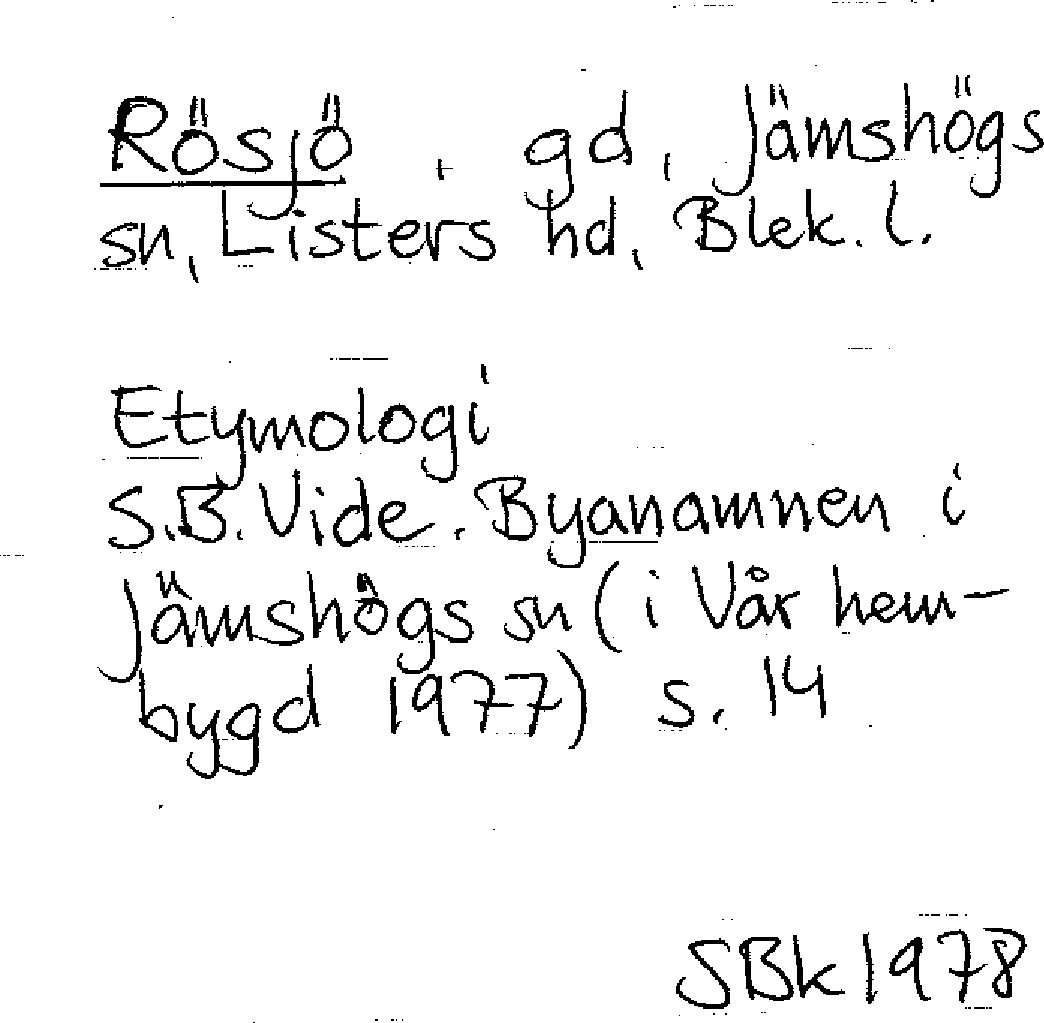 Rösjö, gd, Jämshögs
sn, Listers hd, Blek. l.
Etymologi
S.B. Vide. Byanamnen i
Jämshögs sn (i Vår hem-
bygd 1977) s. 14
SBk 1978